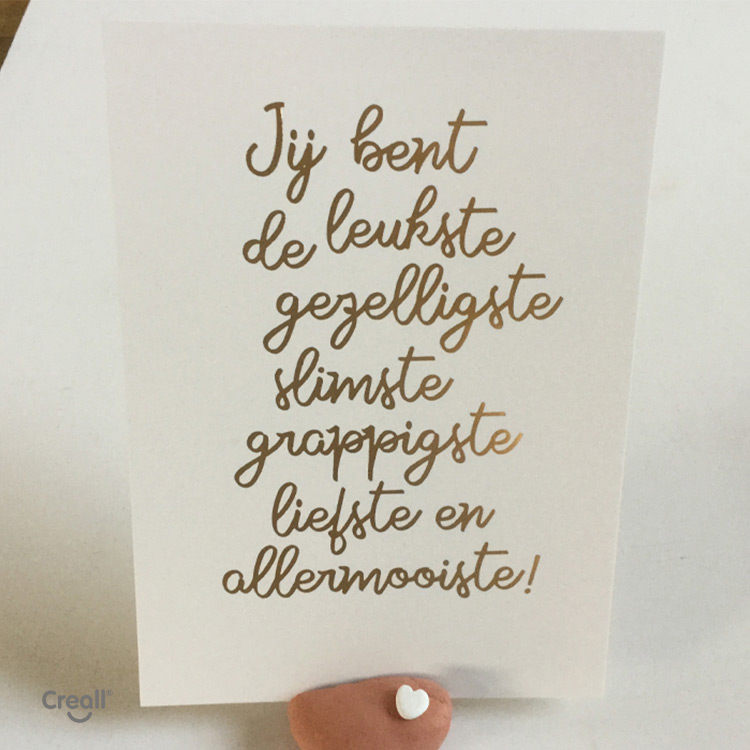 Jij bent
de leukste
gezelligste
slimste
grappigste
liefste en
allermooiste!
Creall®